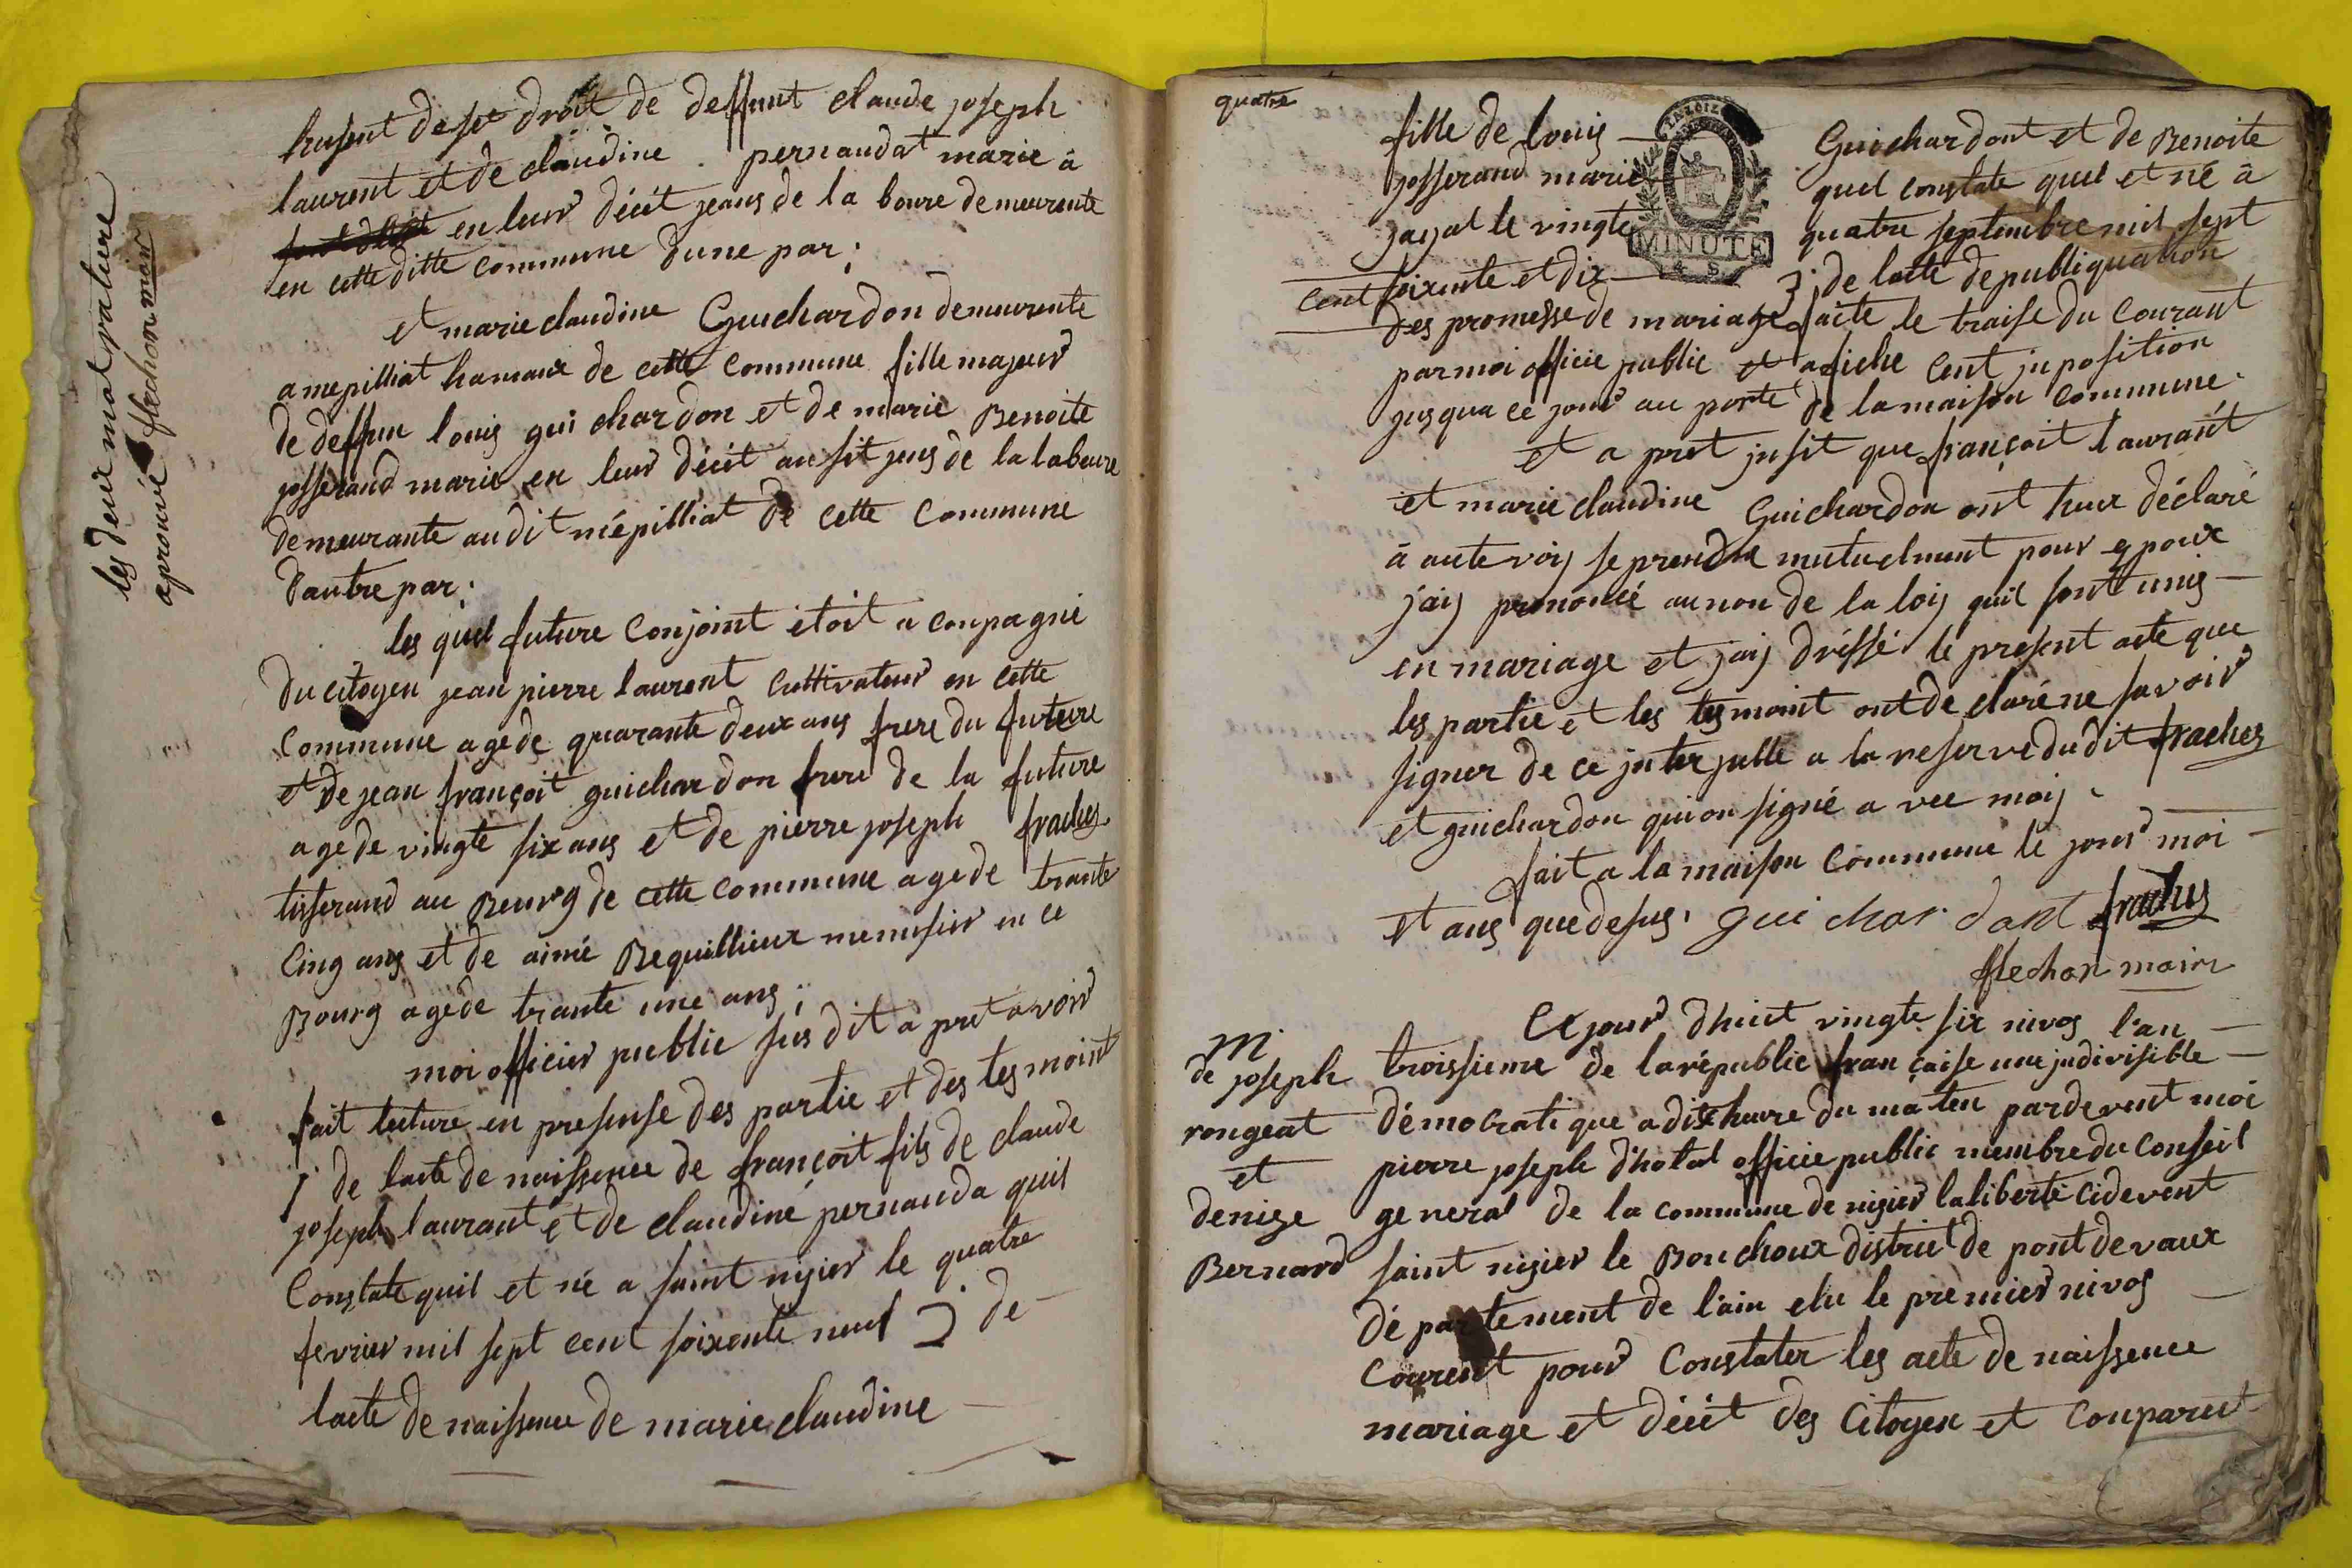 les deux mot rature
aprouvé flechon mair
husent de set droit de deffunt claude joseph
laurent et de claudine . pernaudat marie à
en leur décét jeans de la boure demeurente
en cette ditte commune dune par ;
et marie claudine Guichardon demeurente
a mepilliat hamaux de cette commune fille majeur
de deffun louis guichardon et de marie Benoite
josserand marie en leur décét au sit jens de la laboure
demeurante au dit mépilliat de cette commune
dautre par ;
les quel future conjoint étoit a conpagnié
du citoyen jean pierre laurent cultivateur en cette
commune agé de quarante deux ans frere du future
et de jean françoit guichardon frere de la future
agé de vingte six ans et de pierre joseph frachet
tisserand au Beurg de cette commune agé de trante
cinq ans et de aimé Bequillieux menusier en ce
Bourg agé de trante une ans ;
moi officier public susdit a pret avoir
fait lecture en presense des partie et des tesmoint
1° de lacte de naissence de françoit fils de claude
joseph laurant et de claudine pernauda quil
constate quil et né a saint nizier le quatre
fevrier mil sept cent soixente neuf 2° de
lacte de naissence de marie claudine
quatre
fille de louis Guichardont et de Benoite
josserand marié quel constate quel et né à
jayat le vingte quatre septembre mil sept
cent soixente et dix 3° de lacte de publiquation
des promesse de mariage faite le traise du courant
par moi officie public et afiche cent juposition
jusqua ce jour au porte de la maison commune.
et a pret jusit que françoit laurant
et marie claudine Guichardon ont hux déclaré
à aute voij se prendre mutuelment pour epoux
jaij prononcé au non de la loij quil sont unis
en mariage et jaij dréssé le present acte que
les partie et les tesmoint ont de claré ne savoir
signer de ce juterpalle a la reserve du dit frachet
et guichardon qui on signé a vec moij.
fait a la maison commune le jour moi
et ans que desus. guichardont frachet
flechon mair
M
de joseph
rongeat
et
denize
Bernard
Ce jour dhuit vingte six nivos l'an
troissieme de la républic française une judivisible
démocratique a dix heure du maten pardevent moi
pierre joseph d'hotal officie public membre du conseil
general de la commune de nizier la liberté cidevent
saint nizier le Bouchoux district de pont de vaux
département de l'ain elu le premier nivos
courent pour constater les acte de naissence
mariage et décét des citoyen et conparut
MINUTE
4 S